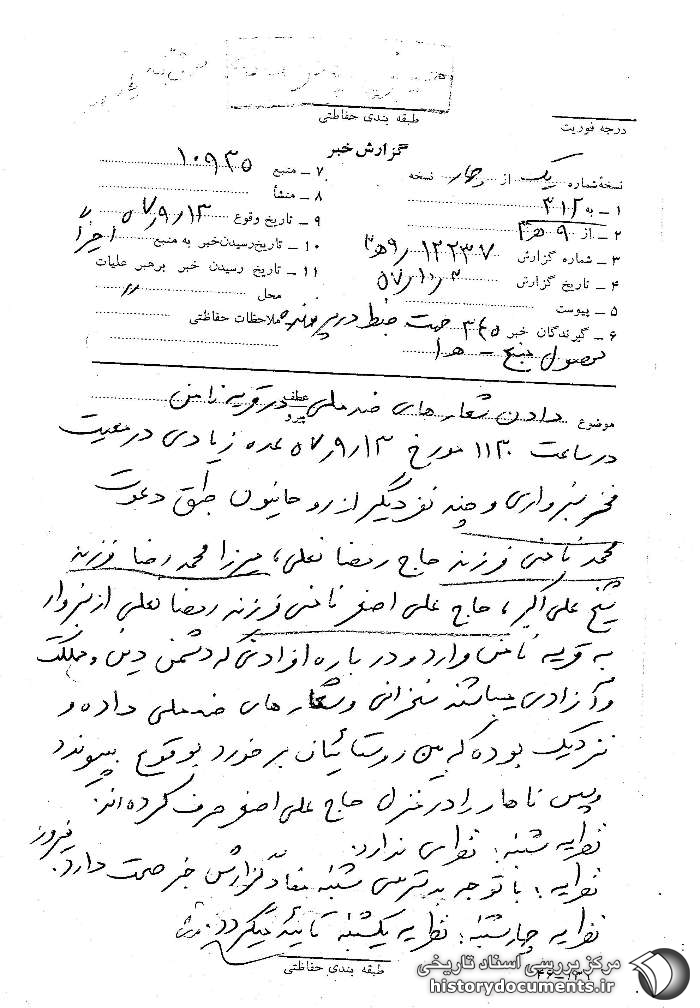 طبقه بندی حفاظتی
درجه فوریت
گزارش خبر
نسخه شماره یک از چهار نسخه
۱ – به ۳۱۲
۲ – از ۹ هـ ۳
۳ – شماره گزارش ۱۲۲۳۷ / ۹ هـ ۳
۴ – تاریخ گزارش
۵ – پیوست
۶ – گیرندگان خبر ۳۴۵ جهت ضبط در پرونده
۷ – منبع ۱۰۹۳۵
۸ – منشأ
۹ – تاریخ وقوع ۵۷/۹/۱۳
۱۰ – تاریخ رسیدن خبر به منبع اخیراً
۱۱ – تاریخ رسیدن خبر برهبر عملیات
محل "
ملاحظات حفاظتی
موضوع دادن شعارهای ضد ملی در قریه نامن
عطف
پیرو
در ساعت ۱۱۳۰ مورخ ۵۷/۹/۱۳ عده زیادی در معیت
فخر سبزواری و چند نفر دیگر از روحانیون طبق دعوت
محمد نامنی فرزند حاج رمضانعلی، میرزا محمد رضا فرزند
شیخ علی اکبر، حاج علی اصغر نامنی فرزند رمضانعلی از سبزوار
به قریه نامن وارد و در باره افرادی که دشمن دین و مملکت
و آزادی میباشند سخنرانی و شعارهای ضد ملی داده و
نزدیک بوده که بین روستائیان برخورد بوقوع بپیوندد
و پس ناهار را در منزل حاج علی اصغر صرف کرده اند.
نظریه شنبه: نظری ندارد.
نظریه: با توجه بدسترسی شنبه مفاد گزارش خبر صحت دارد. فیروز
نظریه چهارشنبه: نظریه یکشنبه تائید میگردد.
طبقه بندی حفاظتی
مرکز بررسی اسناد تاریخی
historydocuments.ir